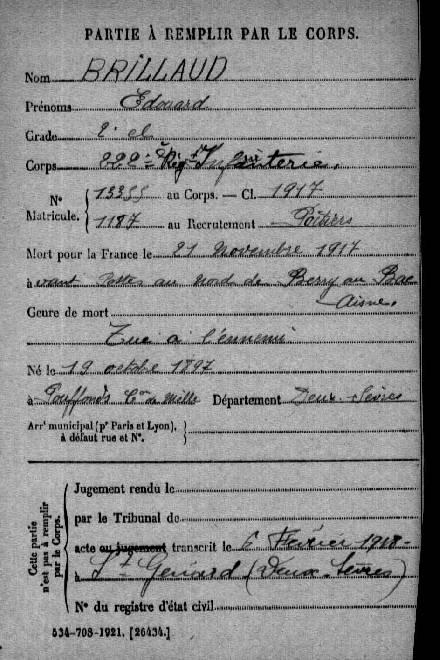 PARTIE À REMPLIR PAR LE CORPS.
Nom BRILLAUD
Prénoms Edouard
Grade 2e cl
Corps 222e Régt Infanterie.
N° Matricule. { 13355 au Corps. — Cl. 1917
1187 au Recrutement Poitiers
Mort pour la France le 21 Novembre 1917
à au nord de Berry au Bac
Aisne
Genre de mort
Tué à l'ennemi
Né le 19 octobre 1897
à Pouffonds Con de Melle Département Deux-Sèvres
Arrt municipal (pr Paris et Lyon),
à défaut rue et N°.
Cette partie n'est pas à remplir par le Corps.
Jugement rendu le
par le Tribunal de
acte ou jugement transcrit le 6 Février 1918-
à St Génard (Deux Sèvres)
N° du registre d'état civil
534-708-1921. [26434.]